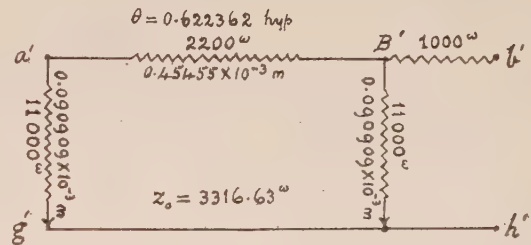 θ = 0.622362 hyp
2200ω
a′
B′
1000ω
b′
0.45455×10⁻³ m
11000ω
0.090909×10⁻³ m
11000ω
0.090909×10⁻³ m
z₀ = 3316.63ω
g′
h′